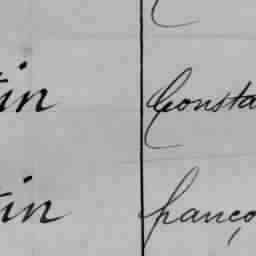 tin Consta
tin franço